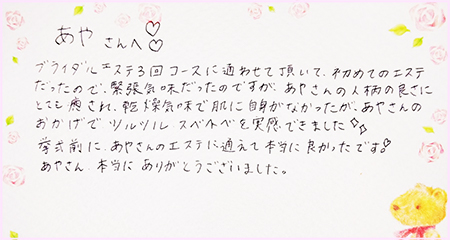 あや さんへ♡♡
ブライダルエステ3回コースに通わせて頂いて、初めてのエステ
だったので、緊張気味だったのですが、あやさんの人柄の良さに
とても癒され、乾燥気味で肌に自身がなかったが、あやさんの
おかげでツルツル スベスベを実感できました✧✧
挙式前に、あやさんのエステに通えて本当に良かったです!
あやさん、本当にありがとうございました。